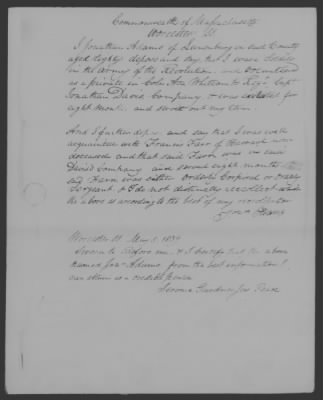 Commonwealth of Massachusetts
Worcester, SS.
I Jonathan Adams of Lunenburg in said County
aged Eighty depose and say that I was a Soldier
in the Army of the Revolution, and I enlisted
as a private in Col. Asa Whitcomb Regt. Capt
Jonathan Davis Company, I was enlisted for
eight months and served out my term.
And I further depose and say that I was well
acquainted with Francis Farr of Harvard now
deceased and that said Farr was in said
Davis Company and served eight months
said Farr was either Orderly Corporal or
Sergeant & I do not distinctly recollect which
the above is according to the best of my recollection
Jona Adams
Worcester SS. May 5, 1837
Sworn to Before me, & I certify that the above
named Jona Adams, from the best information I
can obtain is a credible person
Jerome Gardner Jus Peace